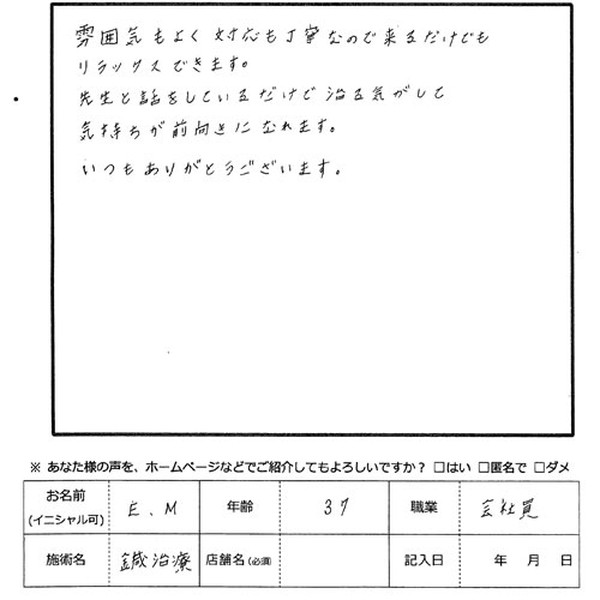 雰囲気もよく対応も丁寧なので来るだけでも
リラックスできます。
先生と話をしているだけで治る気がして
気持ちが前向きになれます。
いつもありがとうございます。
※ あなた様の声を、ホームページなどでご紹介してもよろしいですか？ □はい □匿名で □ダメ
お名前 (イニシャル可) E、M 年齢 37 職業 会社員
施術名 鍼治療 店舗名(必須) 記入日 年 月 日